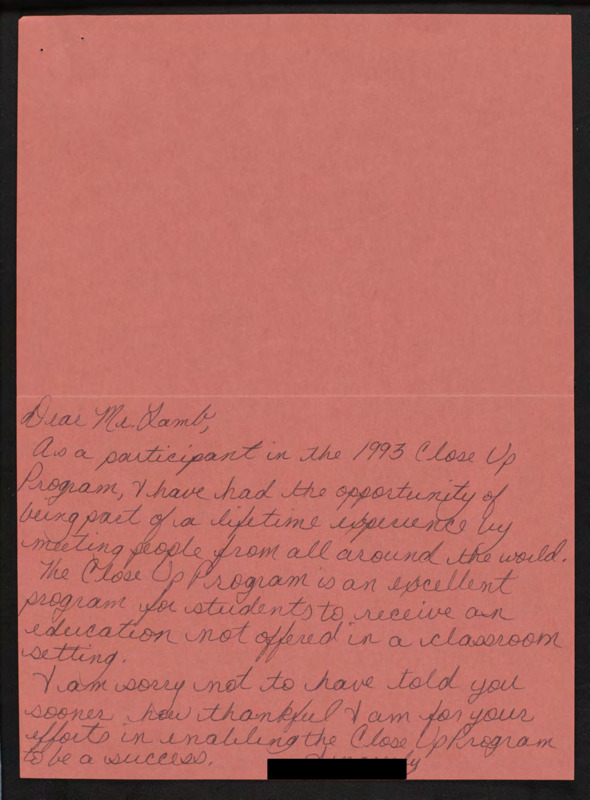 Dear Mr. Lamb,
As a participant in the 1993 Close Up
Program, I have had the opportunity of
being part of a lifetime experience by
meeting people from all around the world.
The Close Up Program is an excellent
program for students to receive an
education not offered in a classroom
setting.
I am sorry not to have told you
sooner how thankful I am for your
efforts in enabling the Close Up Program
to be a success.
Sincerely